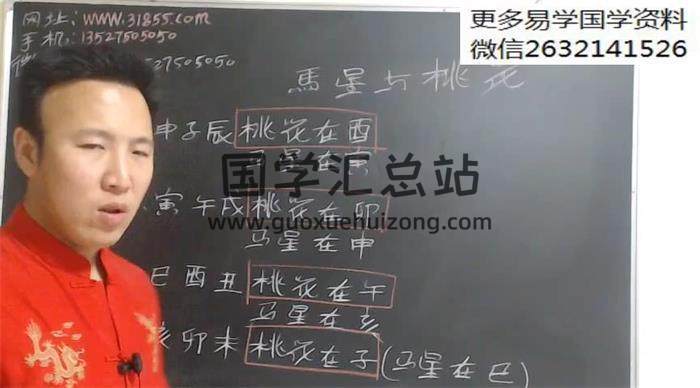 网址:WWW.31855.com
手机:13527505050
27505050
更多易学国学资料
微信2632141526
馬星与桃花
申子辰桃花在酉
马星在寅
国学汇总站
www.guoxuehuizong.com
寅午戌桃花在卯
马星在申
巳酉丑桃花在午
马星在亥
亥卯未桃花在子(马星在巳)